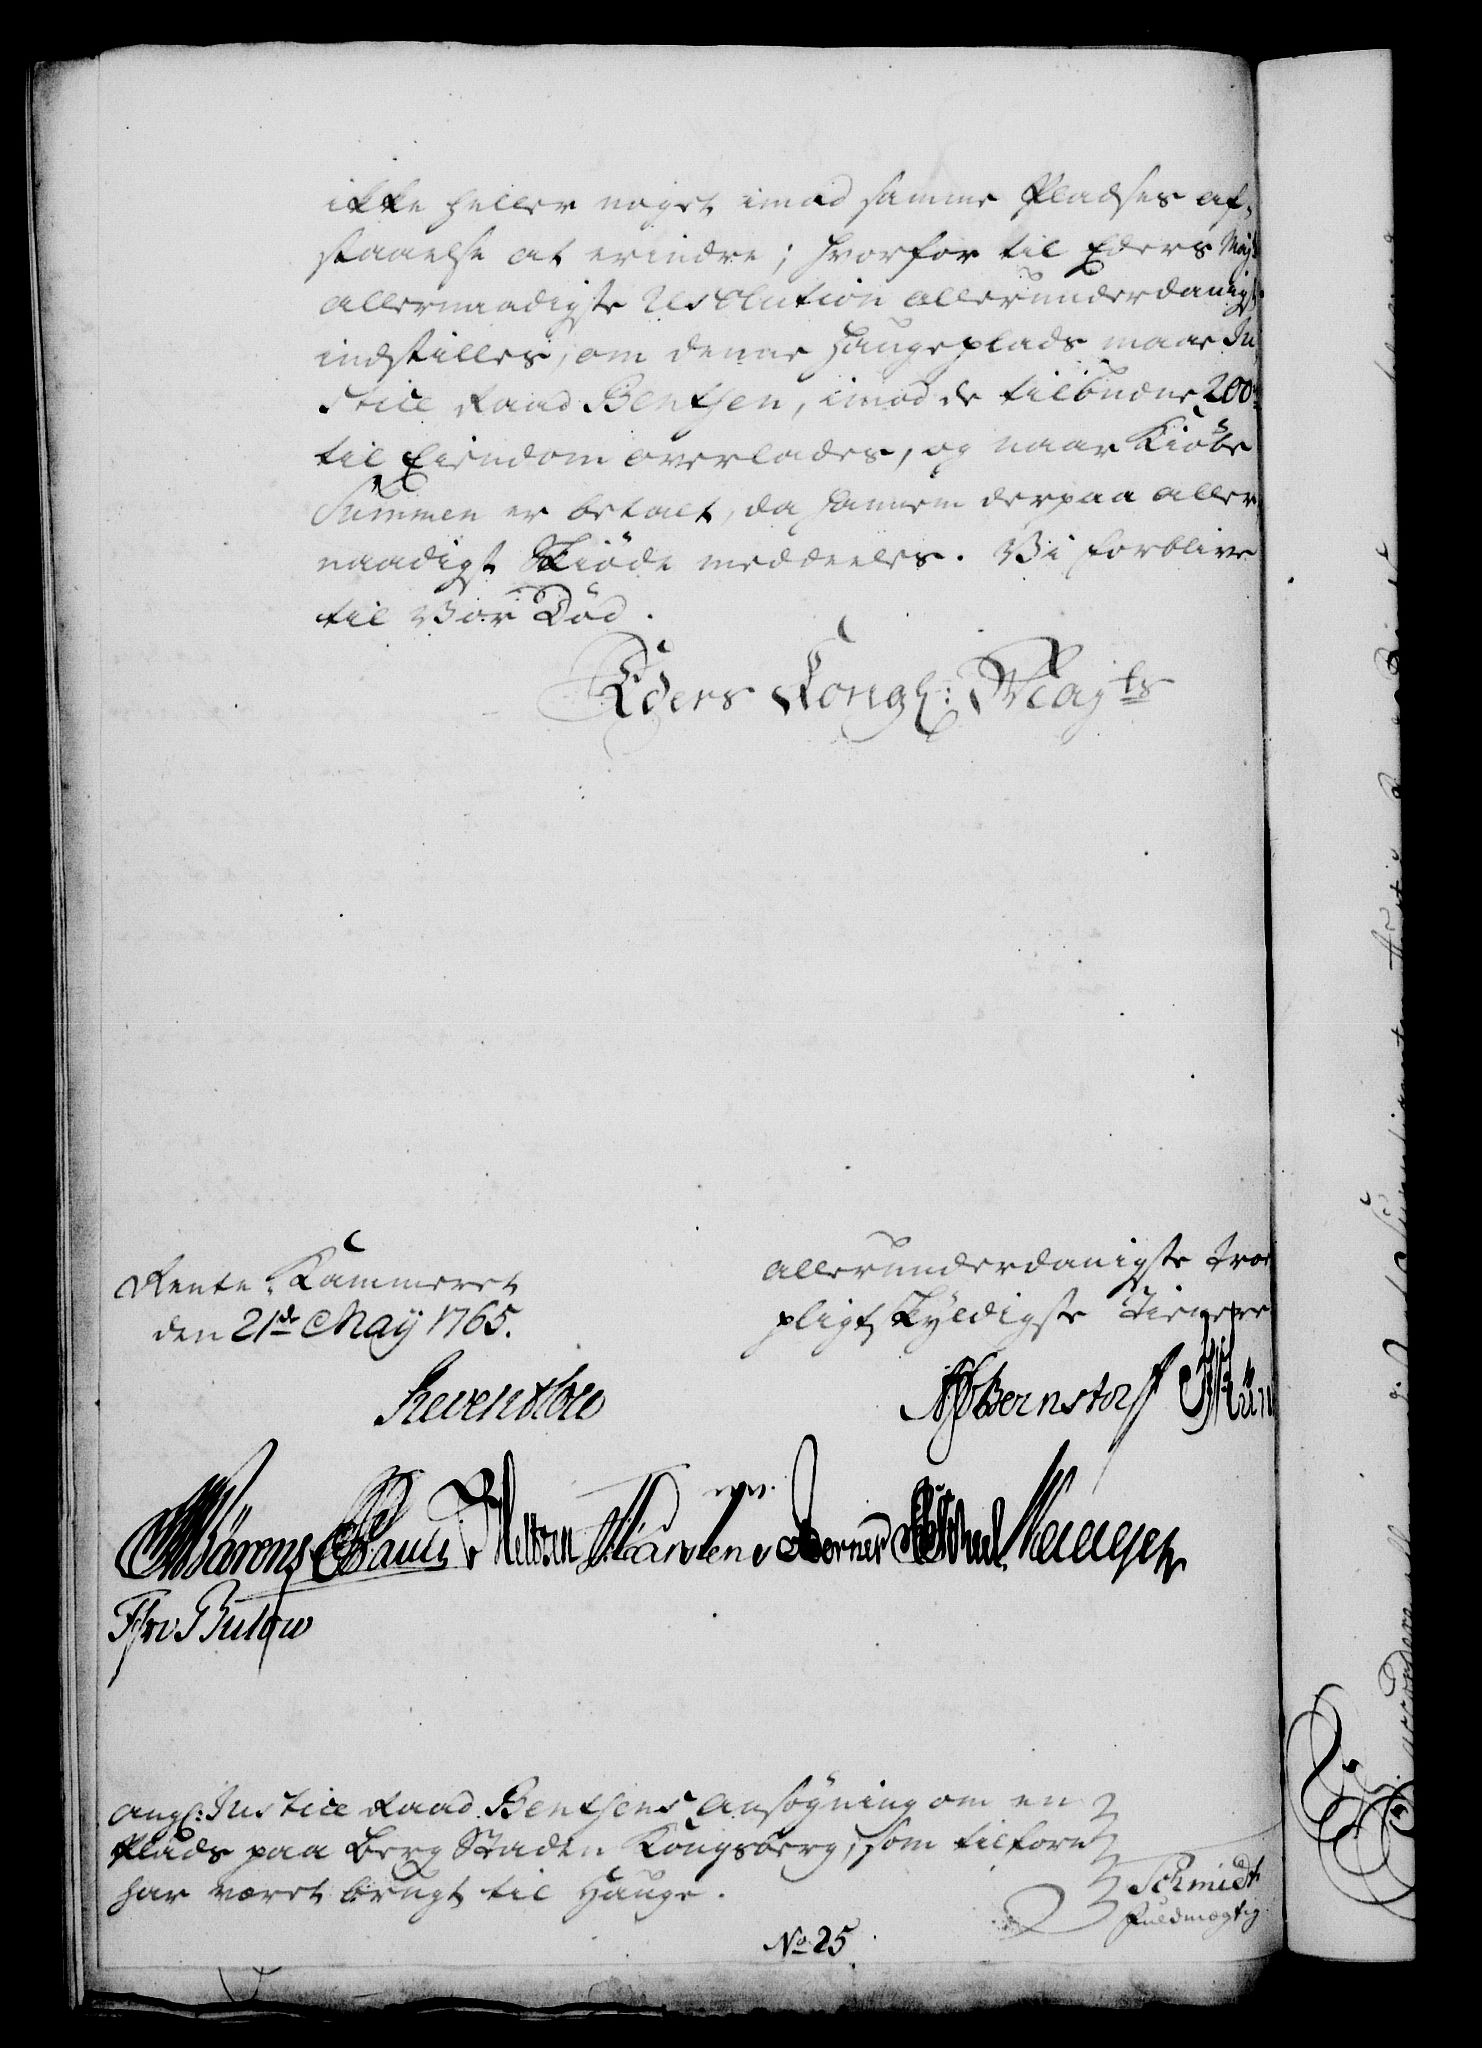 ikke heller noget imod samme Pladses af-
staaelse at erindre; hvorfor til Eders Maj
allernaadigste Resolution allerunderdanigst
indstilles, om denne Haugeplads maae Ju
stice Raad Bentsen, imod de tilbudne 200
til Eiendom overlades, og naar Kiøbe
Summen er betalt, da hannem derpaa aller
naadigst Skiøde meddeeles. Vi forblive
til Vor Død.
Eders Kongl: Mayts
Rente-Kammeret
den 21de May 1765.
allerunderdanigste troe
pligtskyldigste Tienere
Reventlow
Bernstorff
Bärens Pauli Teltzen Carstens Berner
FFvBulow
angl: Justice Raad Bentsens Ansøgning om en
Plads paa Berg Staden Kongsberg, som tilforn
har været brugt til Hauge.
Schmidt
Fuldmægtig
No 25.